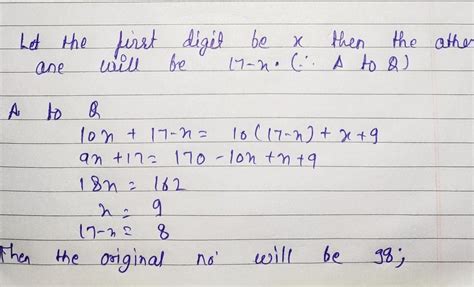 Let the first digit be x then the othe
one will be 17-x. (∵ A to Q)
A to Q
10x + 17-x = 10(17-x) + x + 9
9x + 17 = 170 - 10x + x + 9
18x = 162
x = 9
17-x = 8
Then the original no' will be 98;